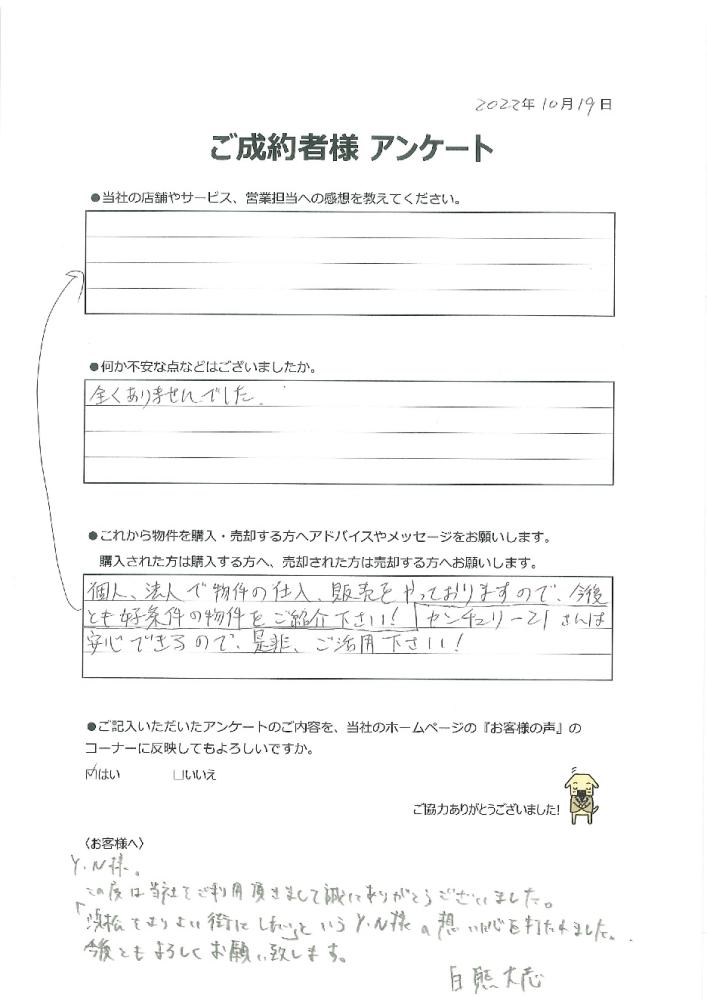 2022年10月19日
ご成約者様 アンケート
●当社の店舗やサービス、営業担当への感想を教えてください。
●何か不安な点などはございましたか。
全くありませんでした。
●これから物件を購入・売却する方へアドバイスやメッセージをお願いします。
購入された方は購入する方へ、売却された方は売却する方へお願いします。
個人、法人で物件の仕入、販売をやっておりますので、今後
とも好条件の物件をご紹介下さい! センチュリー21さんは
安心できるので、是非、ご活用下さい!
●ご記入いただいたアンケートのご内容を、当社のホームページの『お客様の声』の
コーナーに反映してもよろしいですか。
☑はい □いいえ
ご協力ありがとうございました!
〈お客様へ〉
Y.N様。
この度は当社をご利用頂きまして誠にありがとうございました。
「浜松をよりよい街にしたい」というY.N様の想いに心を打たれました。
今後ともよろしくお願い致します。